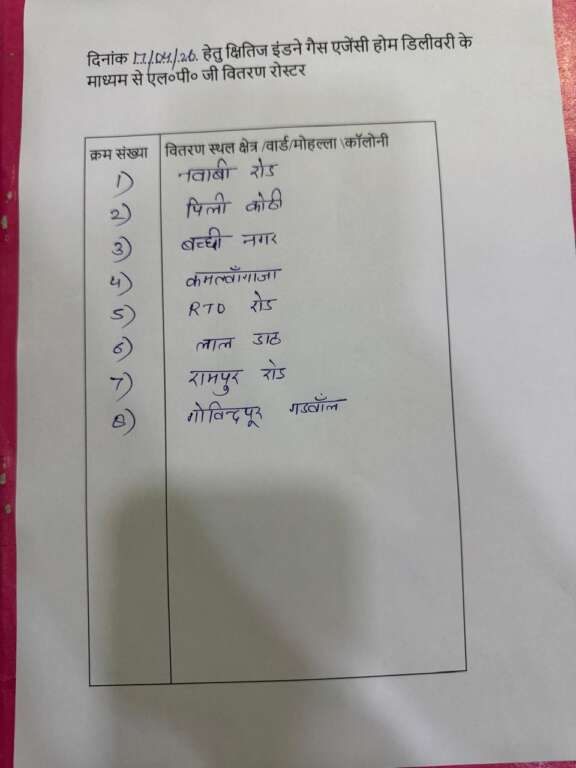 दिनांक 17/04/26. हेतु क्षितिज इंडने गैस एजेंसी होम डिलीवरी के
माध्यम से एल०पी० जी वितरण रोस्टर
क्रम संख्या वितरण स्थल क्षेत्र /वार्ड/मोहल्ला \कॉलोनी
1) नवाबी रोड
2) पिली कोठी
3) बच्ची नगर
4) कमलवाँगाजा
5) RTO रोड
6) लाल डाठ
7) रामपुर रोड
8) गोविन्दपूर गडवाँल